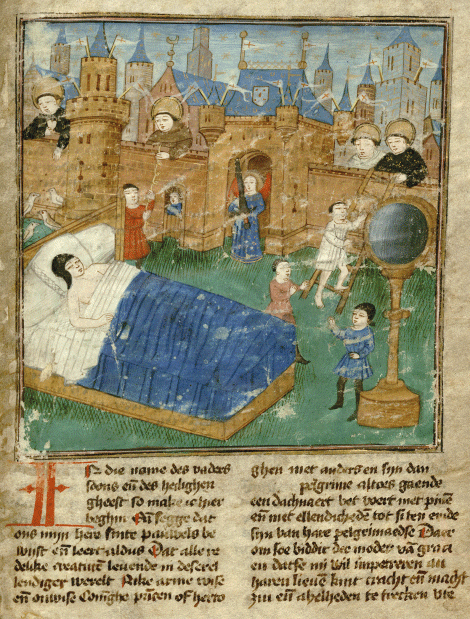 In die name des vaders
soons eñ des heilighen
gheest so make ic hier
beghin Eñ segge dat
ons mijn here sinte pauwels be
wijst eñ leert aldus Dat alle re
delike creatuẽ levende in deserel
lendigher werelt Rike arme wise
eñ onwise Coningħe pñcen of herto
ghen niet anders en sijn dan
pelgrime altoes gaende
een dachvaert het weert met pinẽ
eñ met ellendichedẽ tot si ten einde
sijn van hare pelgrimaedse Daer
om soe biddic die moder vã graciẽ
en datse mi wil impetreren aen
haren lieven kint cracht eñ macht
eñ abelheden te trecken